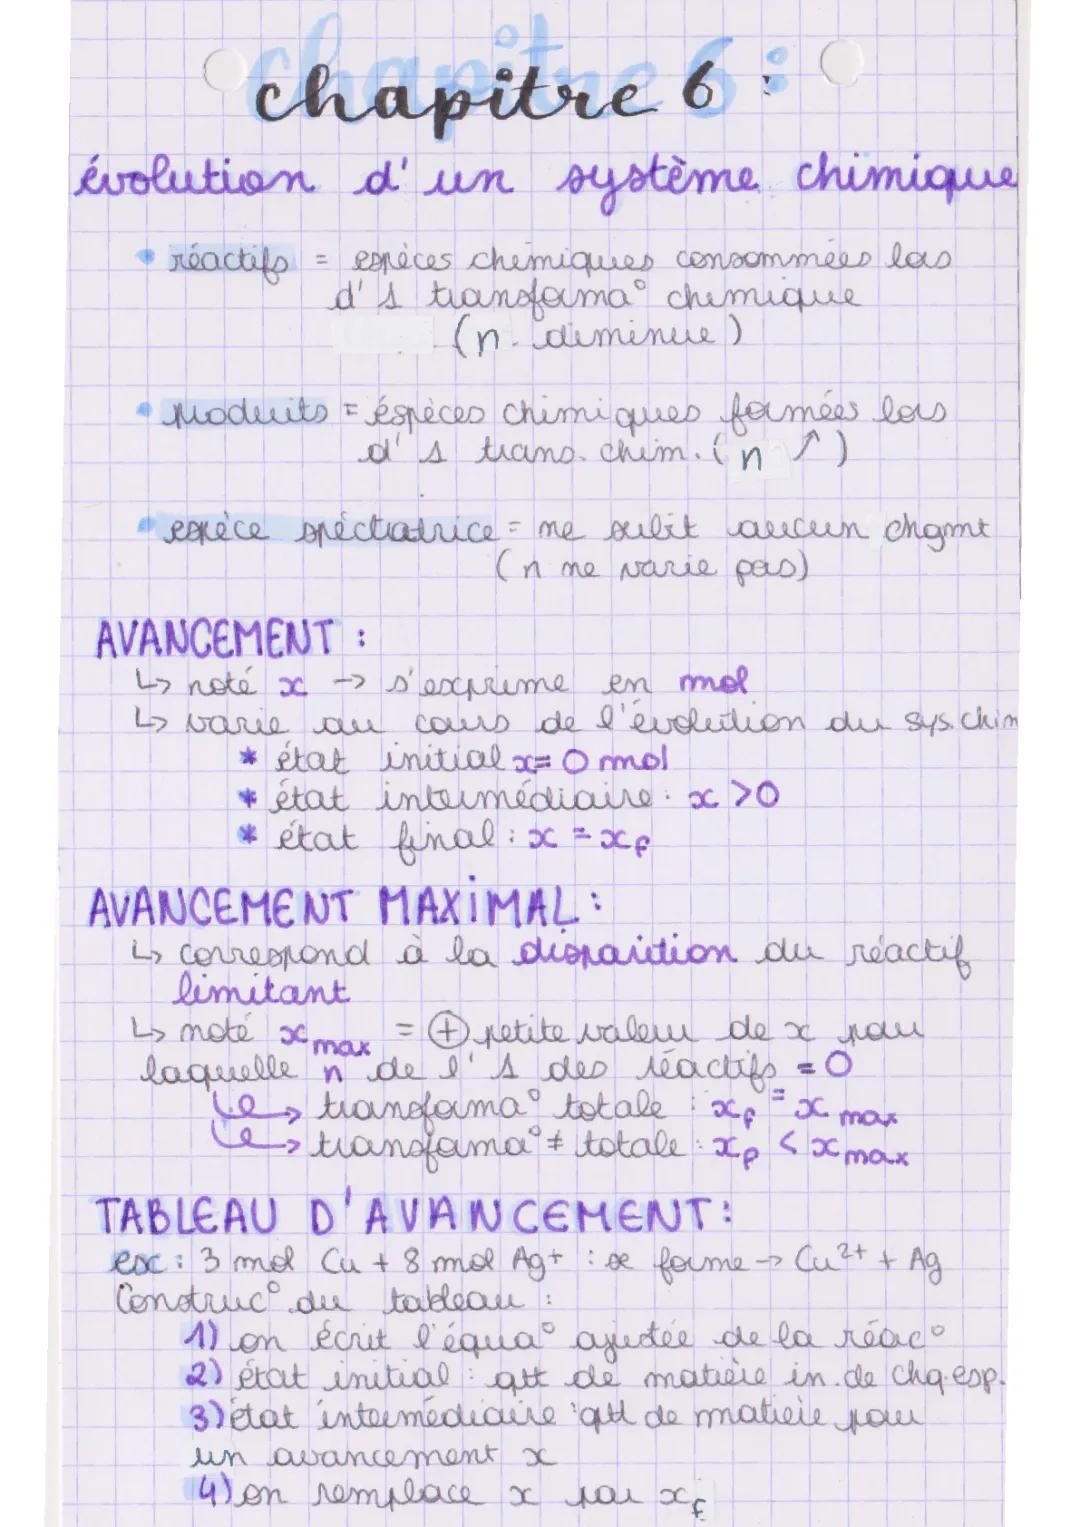 chapitre 6 :
évolution d'un système chimique
• réactifs = espèces chimiques consommées lors
d'1 transforma° chimique
(n diminue)
• produits = éspèces chimiques formées lors
d'1 trans. chim. (n ↑)
• espèce spéctatrice = ne subit aucun chgmt
(n ne varie pas)
AVANCEMENT :
↳ noté x → s'exprime en mol
↳ varie au cours de l'évolution du sys. chim
* état initial x = 0 mol
* état intermédiaire : x > 0
* état final : x = xf
AVANCEMENT MAXIMAL :
↳ correspond à la disparition du réactif
limitant
↳ noté xmax = ⊕ petite valeur de x pour
laquelle n de l'1 des réactifs = 0
↳ transforma° totale : xf = xmax
↳ transforma° ≠ totale : xf < xmax
TABLEAU D'AVANCEMENT :
ex : 3 mol Cu + 8 mol Ag+ : se forme → Cu2+ + Ag
Construc° du tableau :
1) on écrit l'équa° ajustée de la réac°
2) état initial : qtt de matière in. de chq. esp.
3) état intermédiaire : qtt de matière pour
un avancement x
4) on remplace x par xf